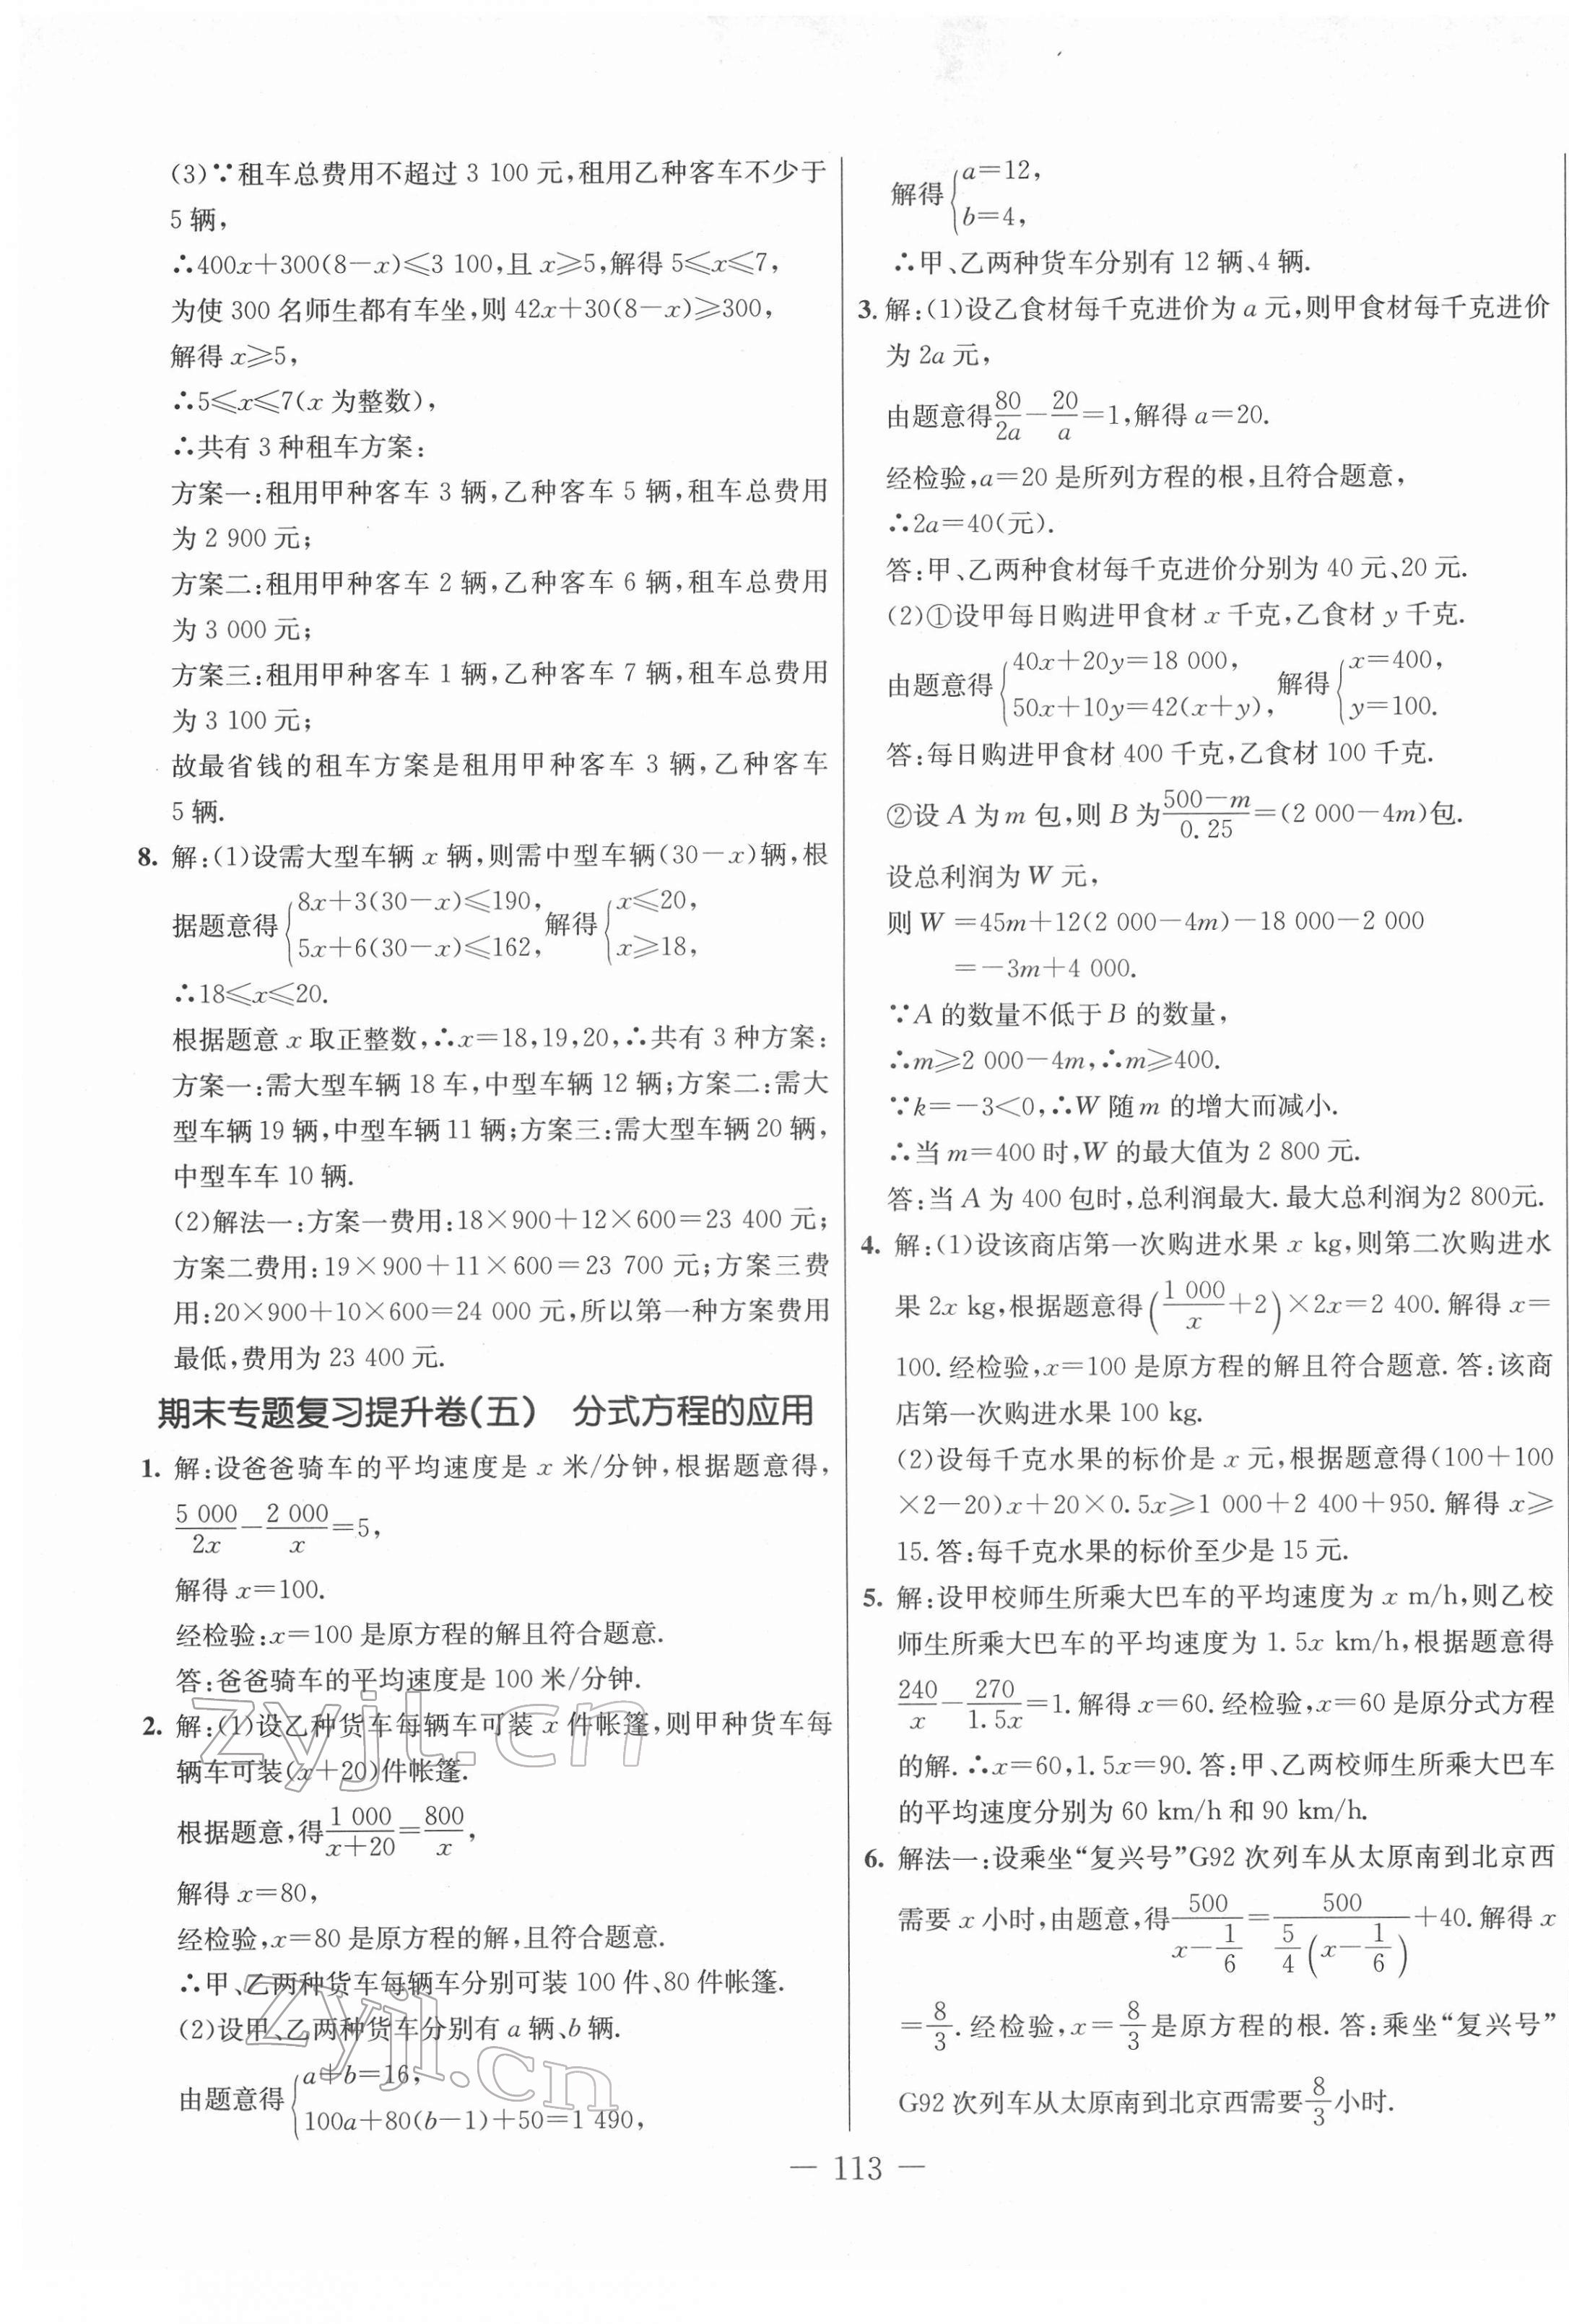 (3)∵租车总费用不超过 3 100 元,租用乙种客车不少于
5 辆,
∴400x+300(8-x)≤3 100,且 x≥5,解得 5≤x≤7,
为使 300 名师生都有车坐,则 42x+30(8-x)≥300,
解得 x≥5,
∴5≤x≤7(x 为整数),
∴共有 3 种租车方案:
方案一:租用甲种客车 3 辆,乙种客车 5 辆,租车总费用
为 2 900 元;
方案二:租用甲种客车 2 辆,乙种客车 6 辆,租车总费用
为 3 000 元;
方案三:租用甲种客车 1 辆,乙种客车 7 辆,租车总费用
为 3 100 元;
故最省钱的租车方案是租用甲种客车 3 辆,乙种客车
5 辆.
8. 解:(1)设需大型车辆 x 辆,则需中型车辆(30-x)辆,根
据题意得{8x+3(30-x)≤190, 5x+6(30-x)≤162, 解得{x≤20, x≥18,
∴18≤x≤20.
根据题意 x 取正整数,∴x=18,19,20,∴共有 3 种方案:
方案一:需大型车辆 18 车,中型车辆 12 辆;方案二:需大
型车辆 19 辆,中型车辆 11 辆;方案三:需大型车辆 20 辆,
中型车车 10 辆.
(2)解法一:方案一费用:18×900+12×600=23 400 元;
方案二费用:19×900+11×600=23 700 元;方案三费
用:20×900+10×600=24 000 元,所以第一种方案费用
最低,费用为 23 400 元.
期末专题复习提升卷(五) 分式方程的应用
1. 解:设爸爸骑车的平均速度是 x 米/分钟,根据题意得,
5 000/2x - 2 000/x = 5,
解得 x=100.
经检验:x=100 是原方程的解且符合题意.
答:爸爸骑车的平均速度是 100 米/分钟.
2. 解:(1)设乙种货车每辆车可装 x 件帐篷,则甲种货车每
辆车可装(x+20)件帐篷.
根据题意,得 1 000/(x+20) = 800/x,
解得 x=80,
经检验,x=80 是原方程的解,且符合题意.
∴甲、乙两种货车每辆车分别可装 100 件、80 件帐篷.
(2)设甲、乙两种货车分别有 a 辆、b 辆.
由题意得{a+b=16, 100a+80(b-1)+50=1 490,
解得{a=12, b=4,
∴甲、乙两种货车分别有 12 辆、4 辆.
3. 解:(1)设乙食材每千克进价为 a 元,则甲食材每千克进价
为 2a 元,
由题意得 80/2a - 20/a = 1,解得 a=20.
经检验,a=20 是所列方程的根,且符合题意,
∴2a=40(元).
答:甲、乙两种食材每千克进价分别为 40 元、20 元.
(2)①设甲每日购进甲食材 x 千克,乙食材 y 千克.
由题意得{40x+20y=18 000, 50x+10y=42(x+y), 解得{x=400, y=100.
答:每日购进甲食材 400 千克,乙食材 100 千克.
②设 A 为 m 包,则 B 为 (500-m)/0.25 = (2 000-4m)包.
设总利润为 W 元,
则 W =45m+12(2 000-4m)-18 000-2 000
=-3m+4 000.
∵A 的数量不低于 B 的数量,
∴m≥2 000-4m,∴m≥400.
∵k=-3<0,∴W 随 m 的增大而减小.
∴当 m=400 时,W 的最大值为 2 800 元.
答:当 A 为 400 包时,总利润最大. 最大总利润为2 800元.
4. 解:(1)设该商店第一次购进水果 x kg,则第二次购进水
果 2x kg,根据题意得(1 000/x+2)×2x=2 400. 解得 x=
100. 经检验,x=100 是原方程的解且符合题意. 答:该商
店第一次购进水果 100 kg.
(2)设每千克水果的标价是 x 元,根据题意得(100+100
×2-20)x+20×0.5x≥1 000+2 400+950. 解得 x≥
15. 答:每千克水果的标价至少是 15 元.
5. 解:设甲校师生所乘大巴车的平均速度为 x m/h,则乙校
师生所乘大巴车的平均速度为 1.5x km/h,根据题意得
240/x - 270/1.5x = 1. 解得 x=60. 经检验,x=60 是原分式方程
的解. ∴x=60,1.5x=90. 答:甲、乙两校师生所乘大巴车
的平均速度分别为 60 km/h 和 90 km/h.
6. 解法一:设乘坐“复兴号”G92 次列车从太原南到北京西
需要 x 小时,由题意,得 500/(x-1/6) = 500/(5/4(x-1/6)) +40. 解得 x
=8/3. 经检验,x=8/3 是原方程的根. 答:乘坐“复兴号”
G92 次列车从太原南到北京西需要 8/3 小时.
— 113 —
zyjl.cn
zyjl.cn